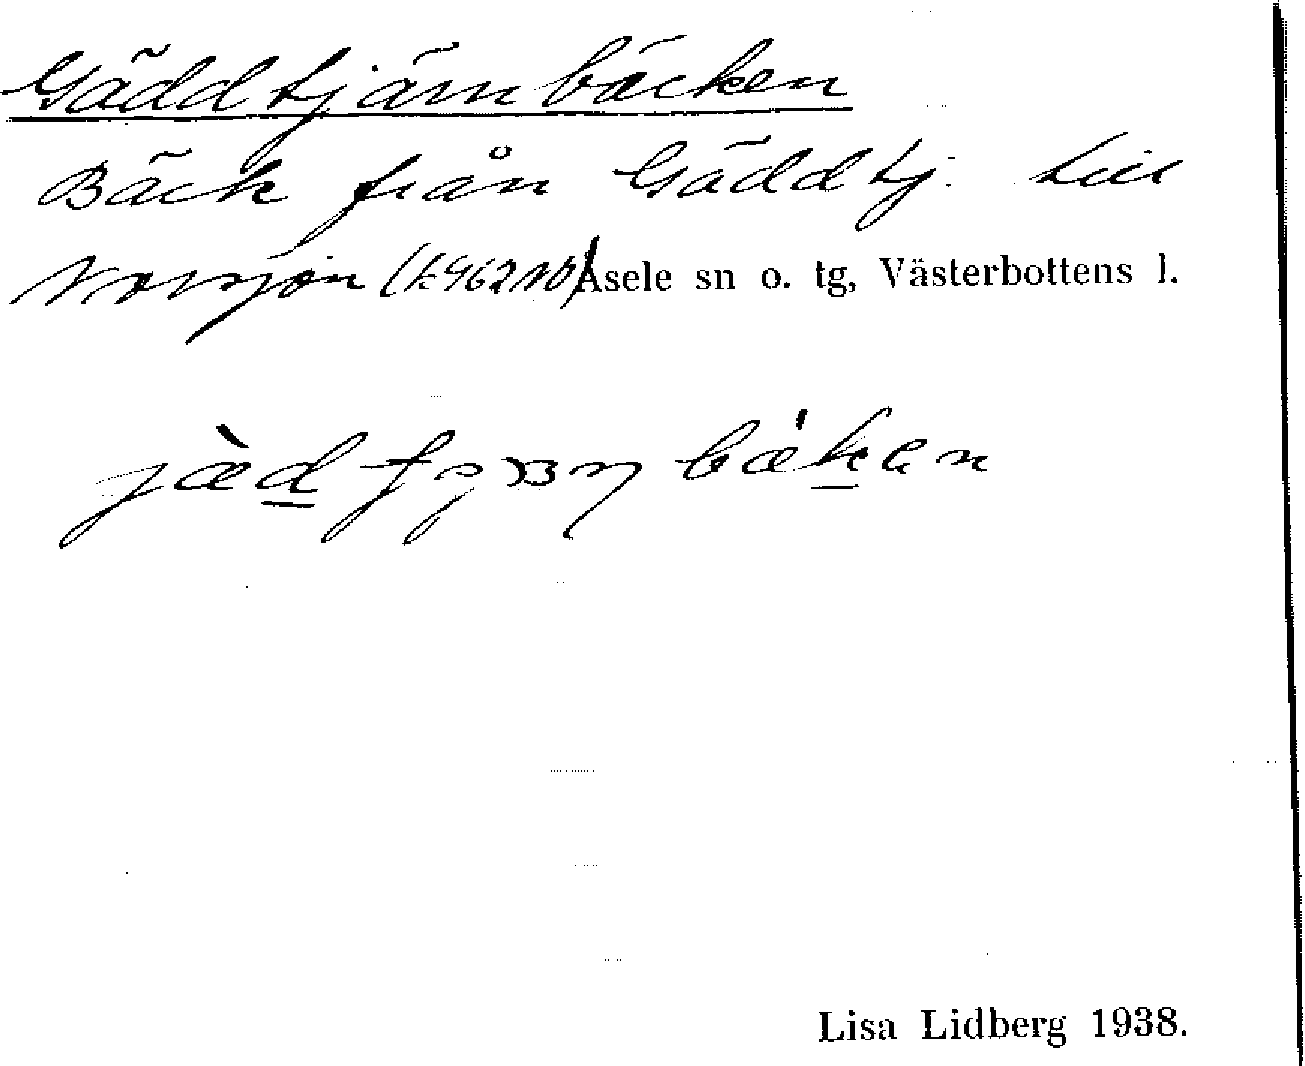 Gäddtjärnbäcken
Bäck från Gäddtj. till
Åsele sn o. tg, Västerbottens l.
Lisa Lidberg 1938.